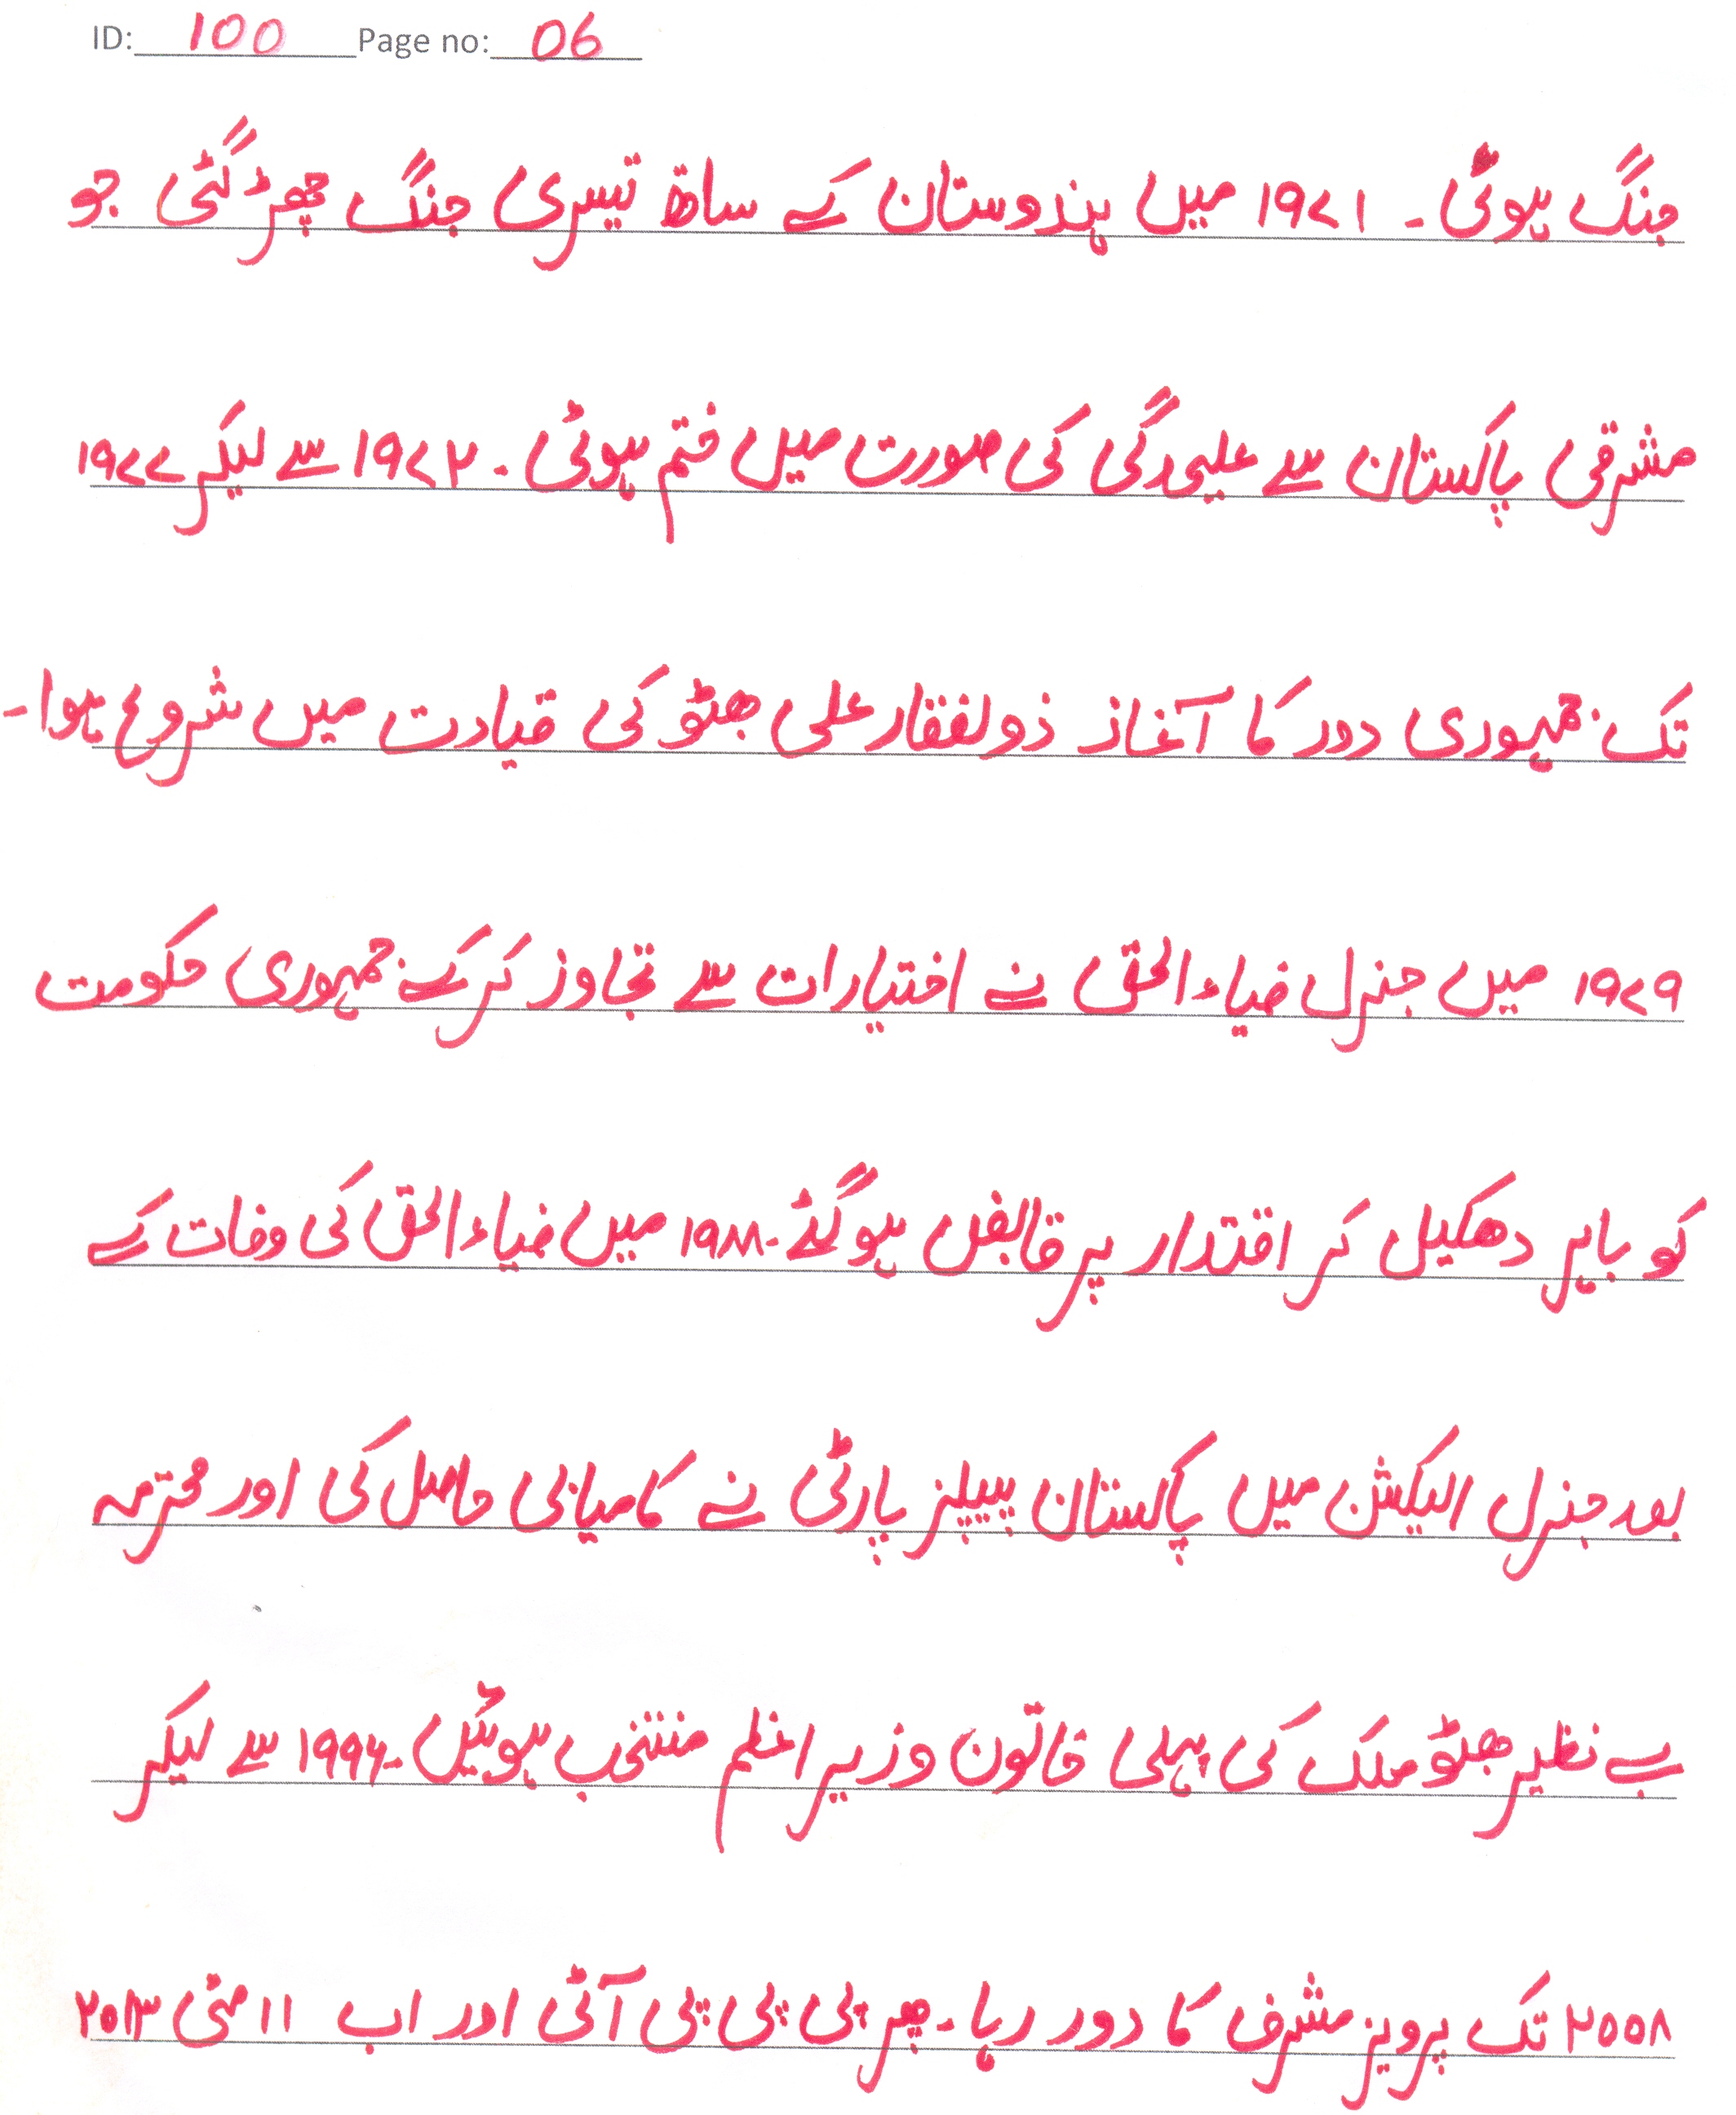 ID: 100 Page no: 06
جنگ ہوئی۔ ۱۹۷۱ میں ہندوستان کے ساتھ تیسری جنگ چھڑ گئی جو
مشرقی پاکستان سے علیحدگی کی صورت میں ختم ہوئی۔ ۱۹۷۲ سے لیکر ۱۹۷۷
تک جمہوری دور کا آغاز ذولفقار علی بھٹو کی قیادت میں شروع ہوا۔
۱۹۷۹ میں جنرل ضیاء الحق نے اختیارات سے تجاوز کرکے جمہوری حکومت
کو باہر دھکیل کر اقتدار پر قابض ہوگئے۔ ۱۹۸۸ میں ضیاء الحق کی وفات کے
بعد جنرل الیکشن میں پاکستان پیپلز پارٹی نے کامیابی حاصل کی اور محترمہ
بے نظیر بھٹو ملک کی پہلی خاتون وزیر اعظم منتخب ہوئیں۔ ۱۹۹۶ سے لیکر
۲۰۰۸ تک پرویز مشرف کا دور رہا۔ پھر پی پی پی آئی اور اب ۱۱ مئی ۲۰۱۳